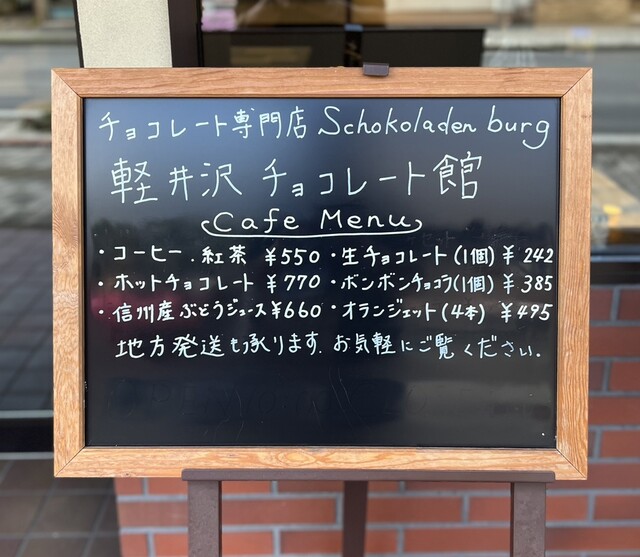 チョコレート専門店 Schokoladen burg
軽井沢 チョコレート館
Cafe Menu
・コーヒー．紅茶 ¥550 ・生チョコレート(1個) ¥242
・ホットチョコレート ¥770 ・ボンボンチョコラ(1個) ¥385
・信州産ぶどうジュース ¥660 ・オランジェット(4本) ¥495
地方発送も承ります．お気軽にご覧ください．